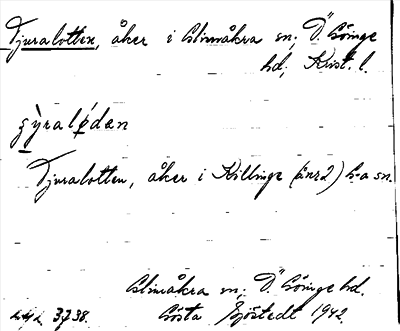 Djuralotten, åker i Glimåkra sn; Ö. Göinge
hd; Krist. l.
Djuralotten, åker i Killinge (änr2) G-a sn.
Glimåkra sn; Ö. Göinge hd.
Gösta Sjöstedt 1942.